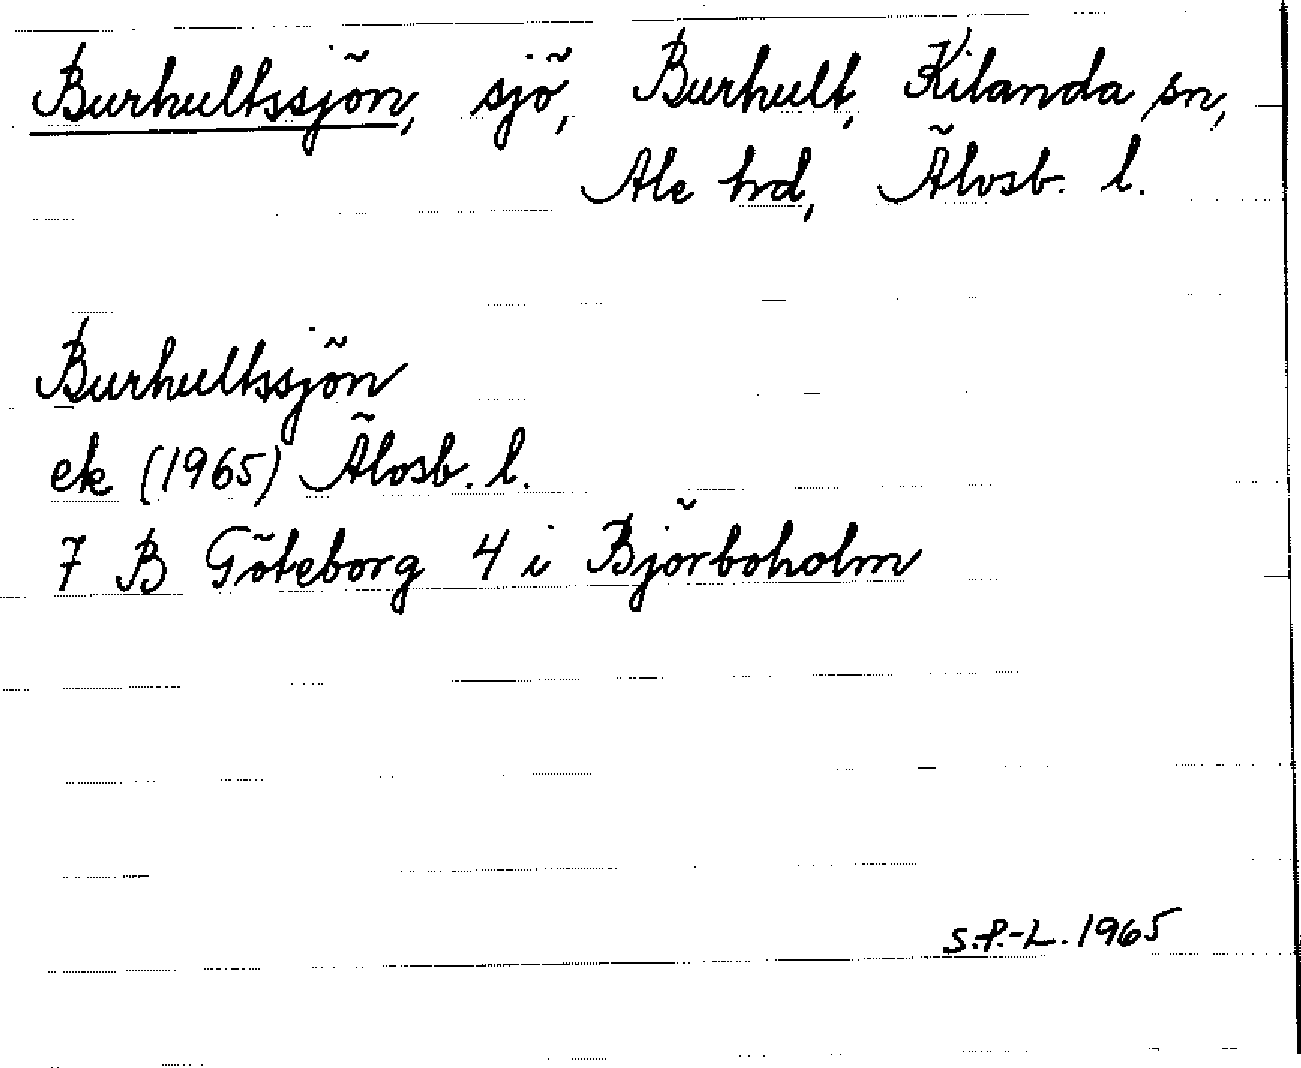 Burhultssjön, sjö, Burhult, Kilanda sn,
Ale hrd, Älvsb. l.
Burhultssjön
ek (1965) Älvsb. l.
7 B Göteborg 4 i Björboholm
S.P.-L. 1965